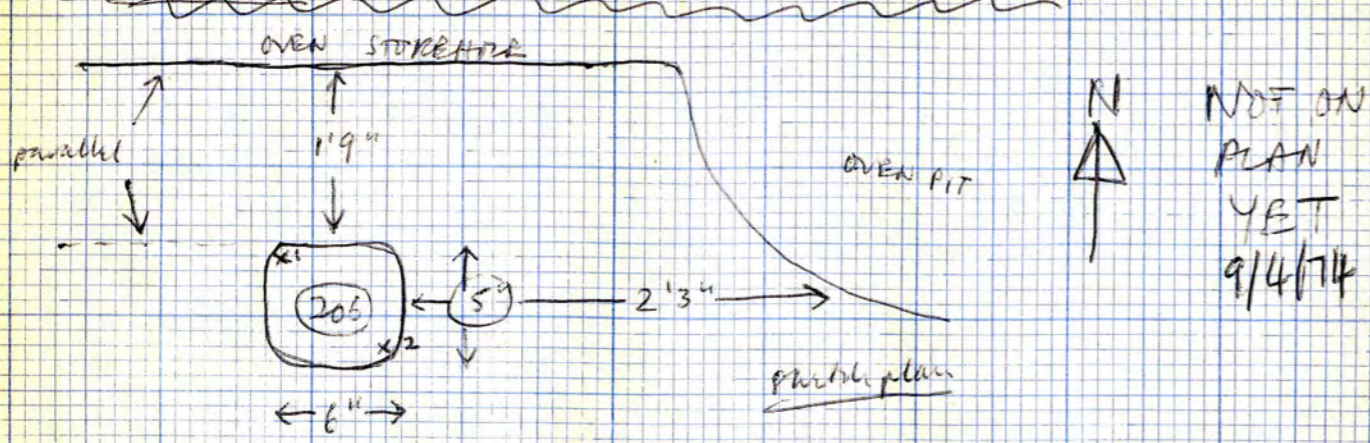 OVEN STOKEHOLE
parallel
1'9"
OVEN PIT
N
NOT ON
PLAN
YET
9/4/74
x1
206
x2
5"
2'3"
6"
sketch plan